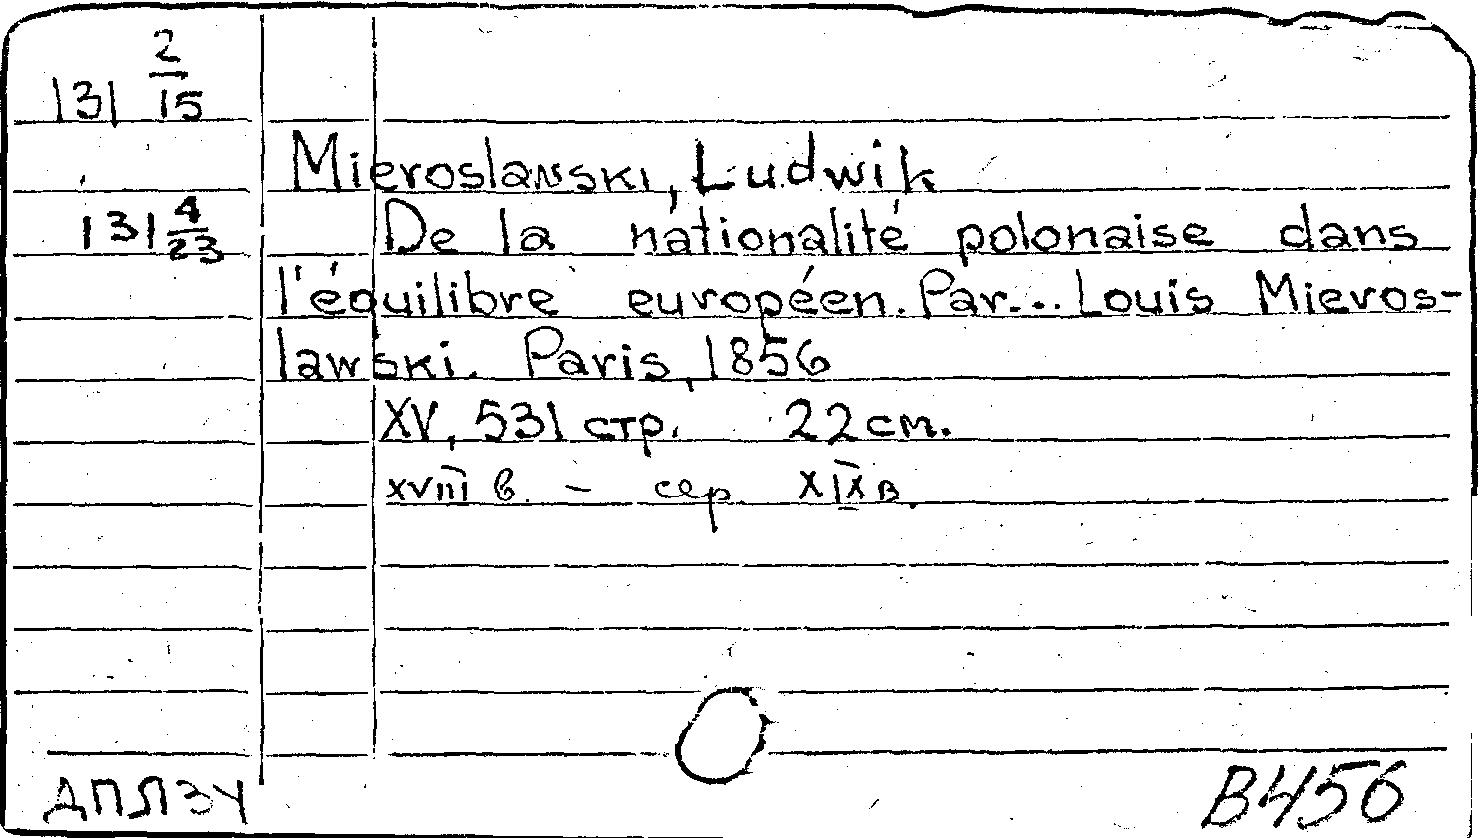 131 2/15
Mieroslawski, Ludwik
131 4/23
De la nationalité polonaise dans
l'équilibre européen. Par... Louis Mieros-
lawski. Paris, 1856
XV, 531 стр. 22 см.
XVIII в. - сер. XIX в.
В456